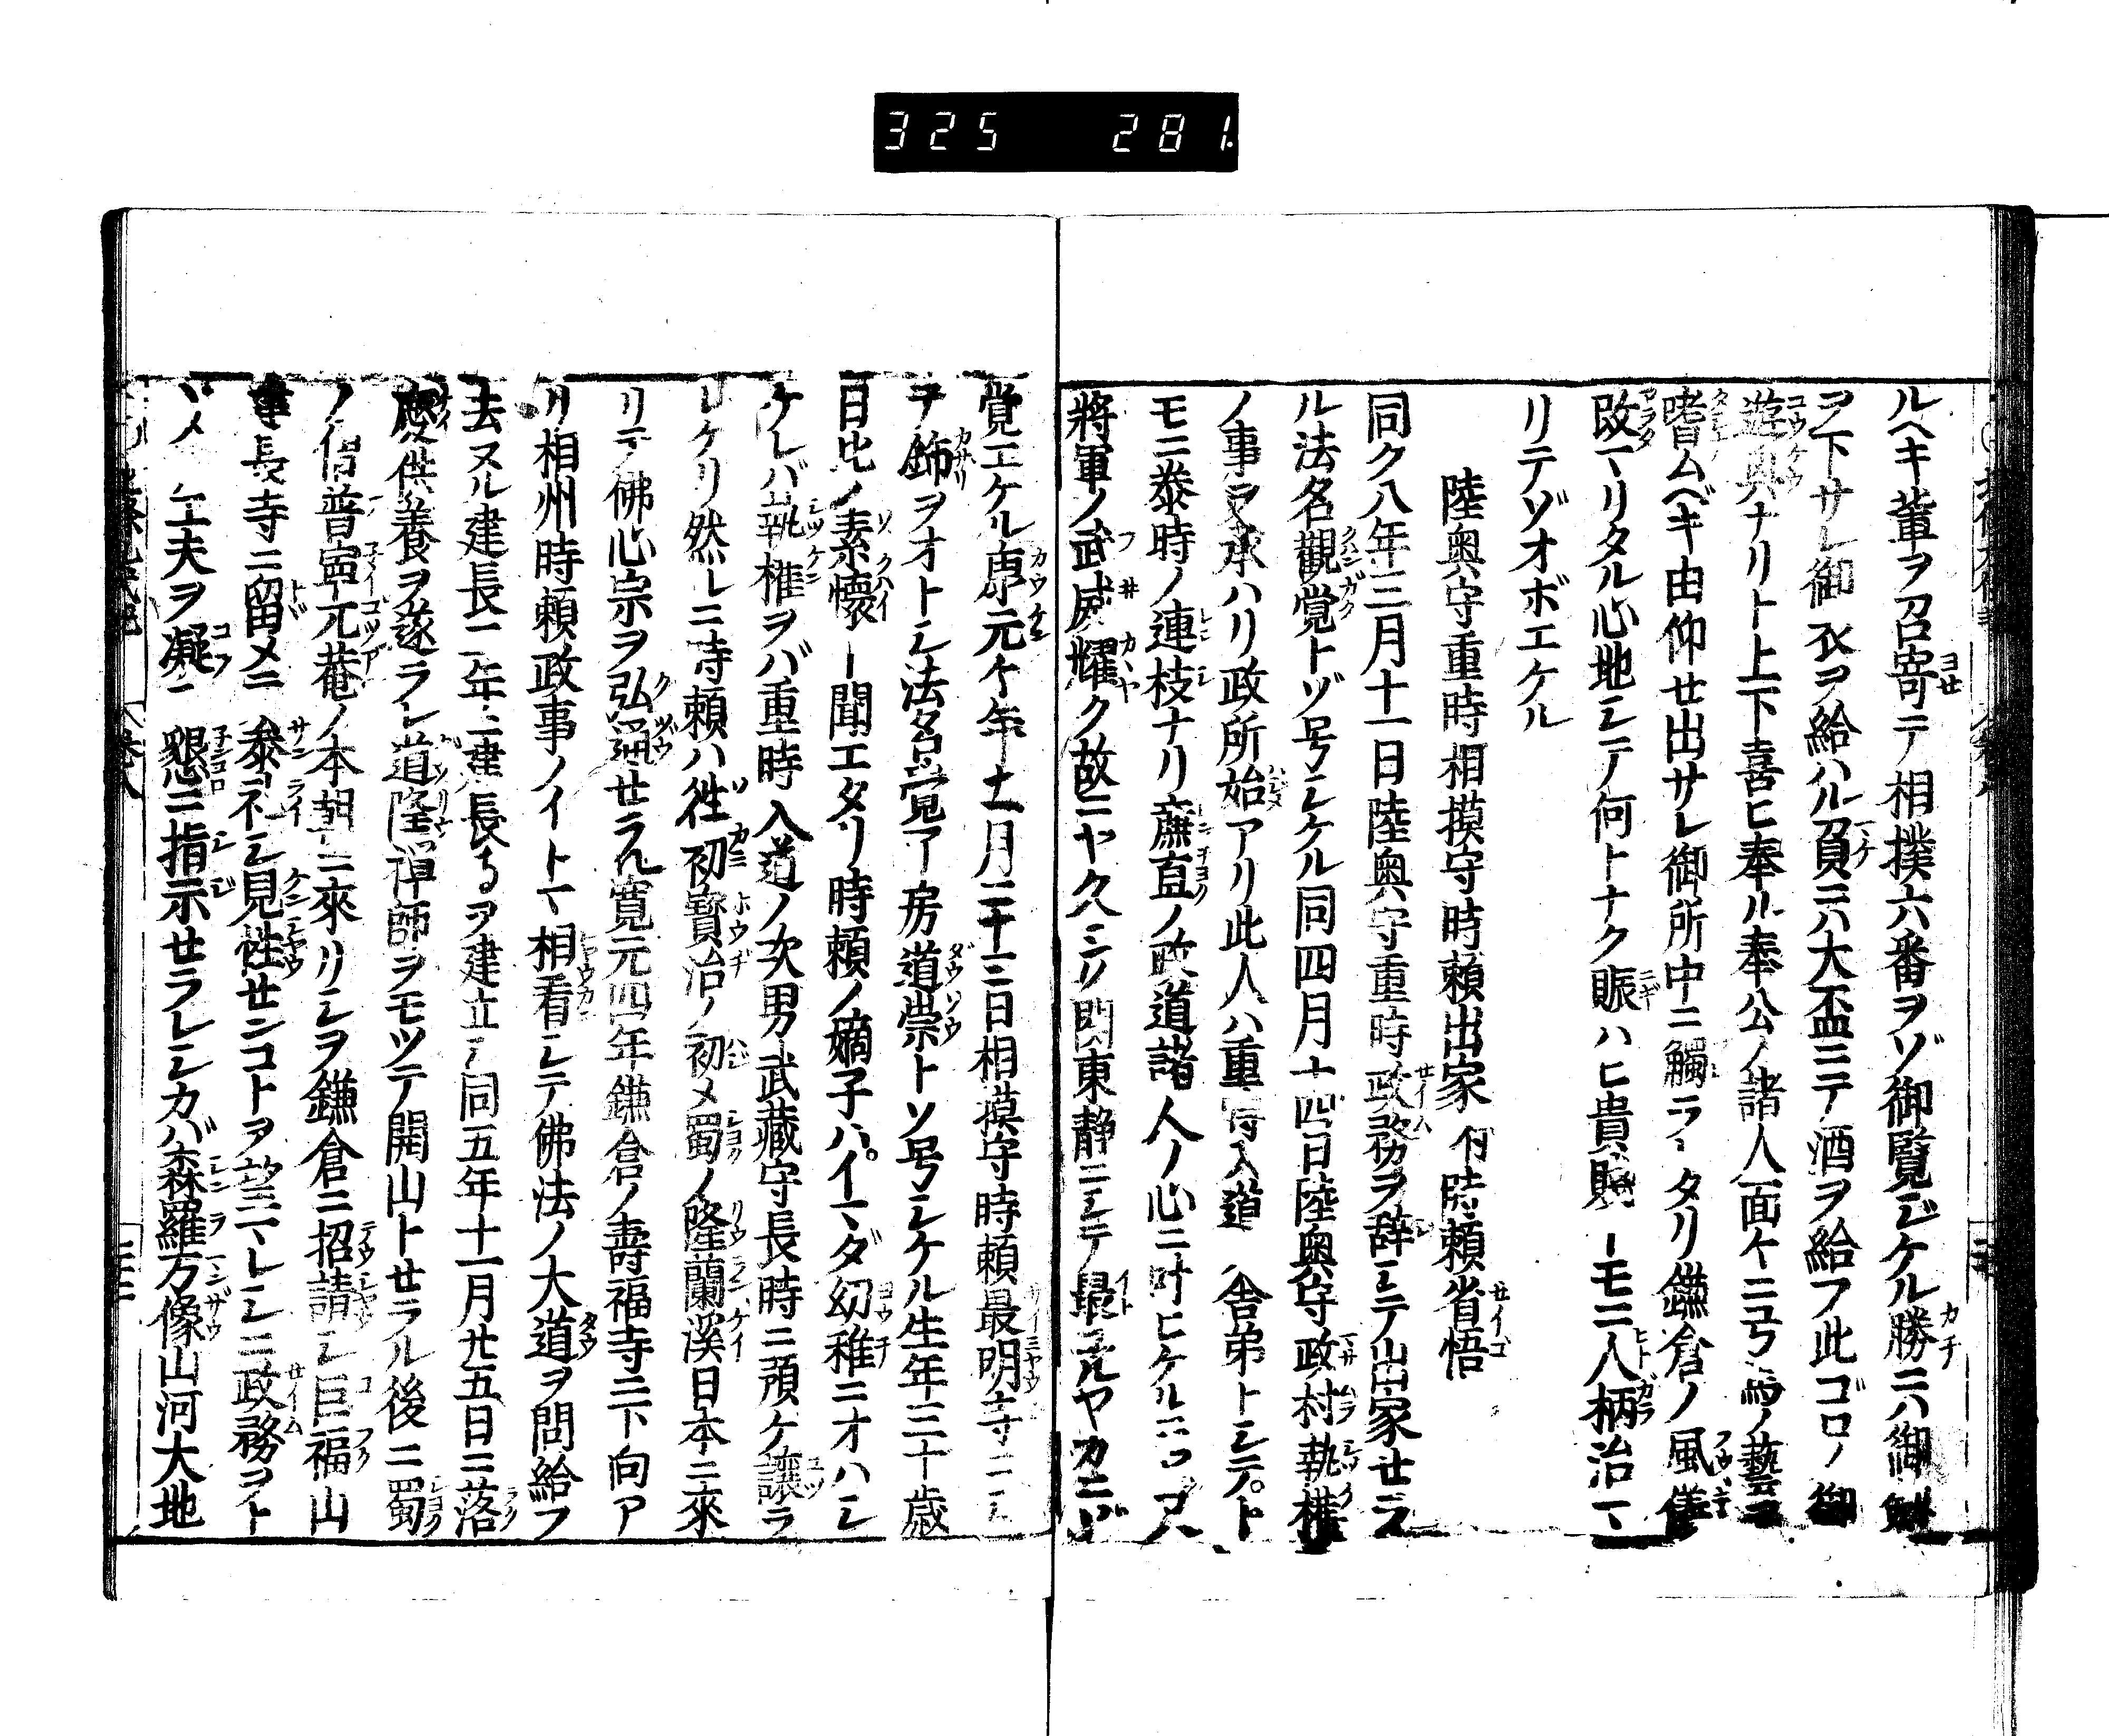 325 281.
ルヘキ輩ヲ召寄テ相撲六番ヲゾ御覧ジケル勝ニハ御劔
ヲ下サレ御衣ヲ給ハル負ニハ大盃ニテ酒ヲ給フ此ゴロノ御
遊興ナリト上下喜ヒ奉ル奉公ノ諸人面々ニ
嗜ムベキ由仰セ出サレ御所中ニ觸ラヽタリ鎌倉ノ風儀
改マリタル心地シテ何トナク賑ハヒ貴賤トモニ人柄治マ
リテゾオボエケル
陸奥守重時相摸守時頼出家 付 時頼省悟
同ク八年三月十一日陸奥守重時政務ヲ辞シテ出家セラ
ル法名觀覚トゾ号シケル同四月十四日陸奥守政村執権
ノ事ヲ承ハリ政所始アリ此人ハ重時入道ノ舎弟トシテト
モニ泰時ノ連枝ナリ廉直ノ政道諸人ノ心ニ叶ヒケル
將軍ノ武威耀ク故ニヤ久シク関東静ニシテ最
覚エケル康元々年十一月二十三日相摸守時頼最明寺ニシ
テ飾ヲオトシ法名覚了房道崇トソ号シケル生年三十歳
日比ノ素懷ト聞エタリ時頼ノ嫡子ハイマダ幼稚ニオハシ
ケレバ執権ヲバ重時入道ノ次男武藏守長時ニ預ケ讓ラ
レケリ然レニ時頼ハ徃初寳治ノ初メ蜀ノ隆蘭溪日本ニ來
リテ佛心宗ヲ弘通セラル寛元四年鎌倉ノ壽福寺ニ下向ア
リ相州時頼政事ノイトマ相看シテ佛法ノ大道ヲ問給フ
去ヌル建長二年ニ建長寺ヲ建立シ同五年十一月廿五日ニ落
慶供養ヲ遂ラレ道隆禅師ヲモツテ開山トセラル後ニ蜀
ノ僧普寧兀菴ノ本朝ニ來リシヲ鎌倉ニ招請シ巨福山
建長寺ニ留メニ參礼シ見性センコトヲ望マレシニ政務ヲト
ヾメ 工夫ヲ凝シ 懇ニ指示セラレシカバ森羅万像山河大地